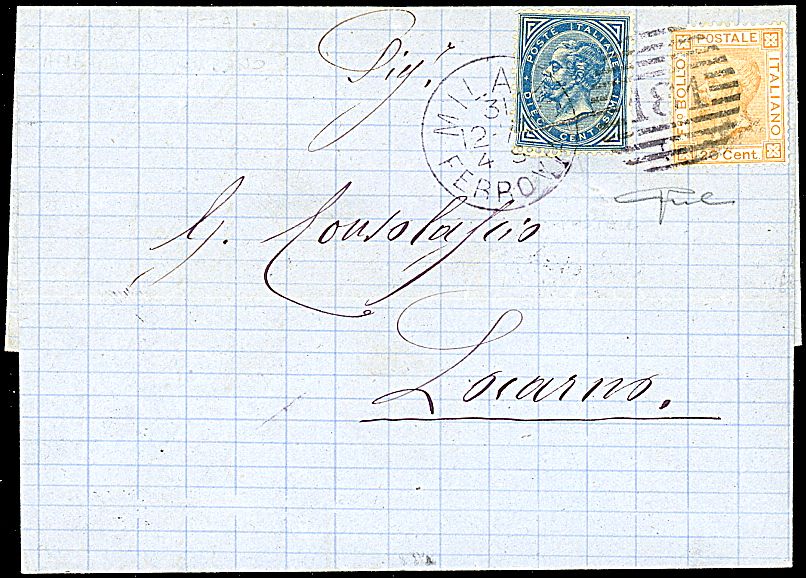 Sig.r
G. Consolascio
Locarno.
POSTE ITALIANE
DIECI CENTESIMI
F.CO BOLLO POSTALE ITALIANO
20 Cent.
MILANO
31
12
4 S
FERROVIA
181